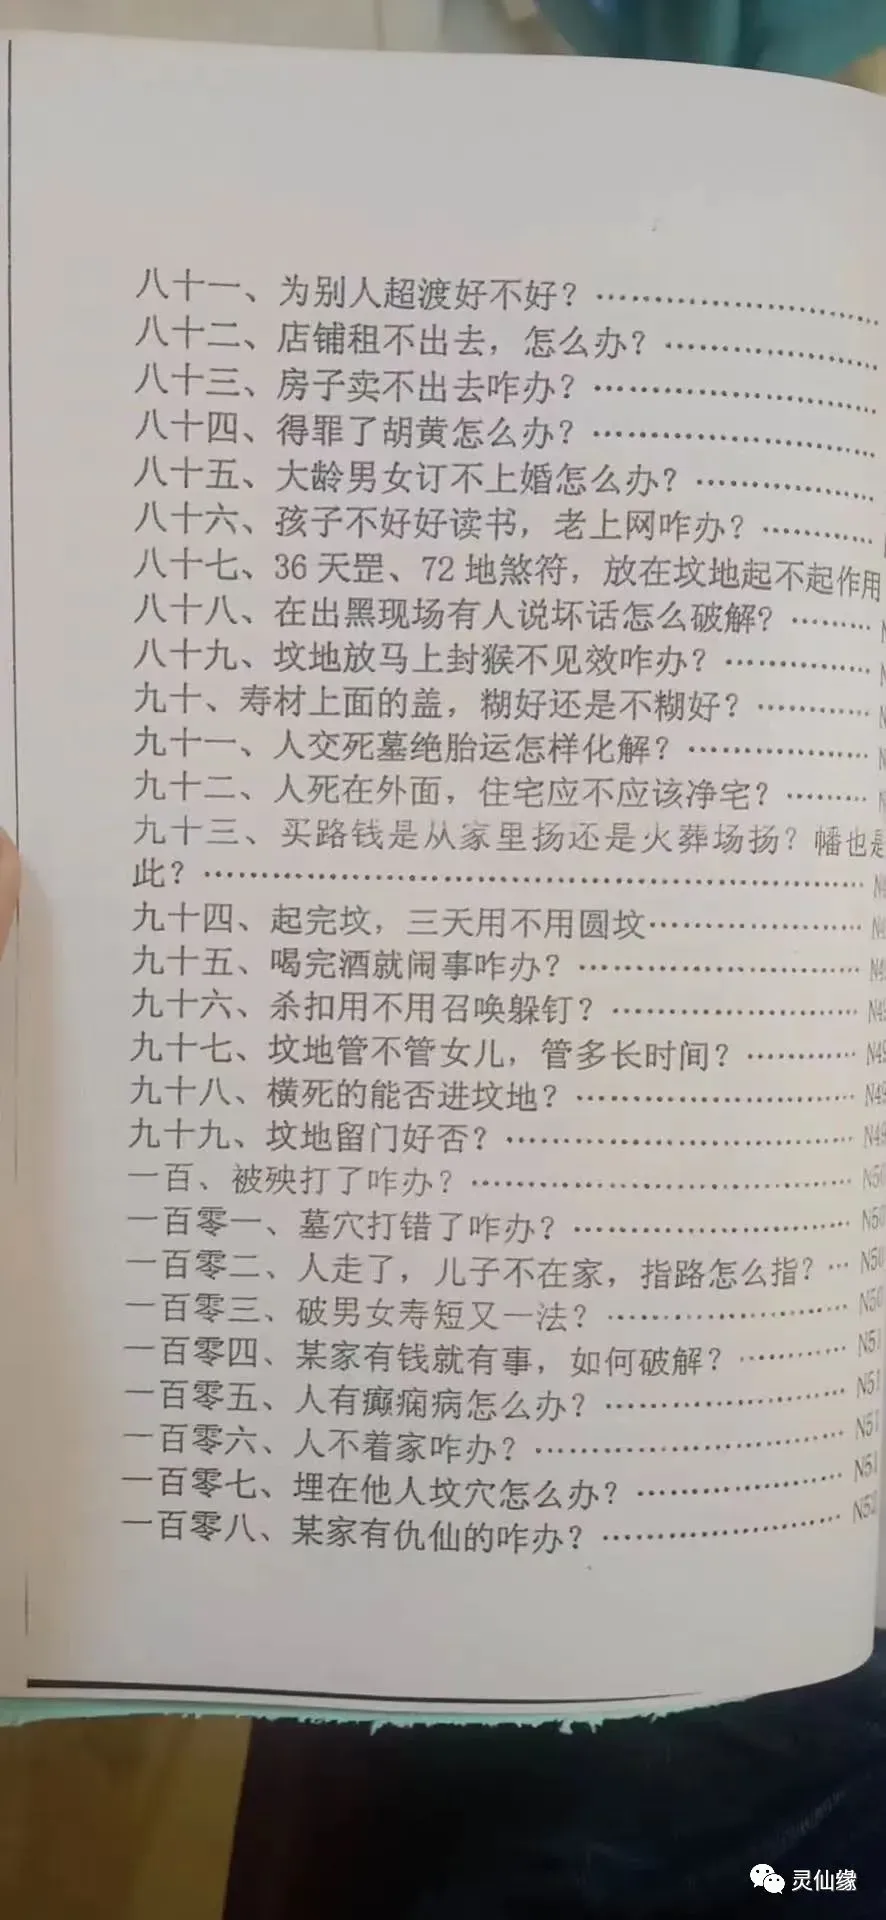 八十一、为别人超渡好不好？……………………
八十二、店铺租不出去，怎么办？………………
八十三、房子卖不出去咋办？……………………
八十四、得罪了胡黄怎么办？……………………
八十五、大龄男女订不上婚怎么办？……………
八十六、孩子不好好读书，老上网咋办？………
八十七、36天罡、72地煞符，放在坟地起不起作用
八十八、在出黑现场有人说坏话怎么破解？………
八十九、坟地放马上封猴不见效咋办？……………
九十、寿材上面的盖，糊好还是不糊好？…………
九十一、人交死墓绝胎运怎样化解？………………
九十二、人死在外面，住宅应不应该净宅？………
九十三、买路钱是从家里扬还是火葬场扬？幡也是
此？……………………………………………………
九十四、起完坟，三天用不用圆坟…………………
九十五、喝完酒就闹事咋办？……………………N49
九十六、杀扣用不用召唤躲钉？…………………N49
九十七、坟地管不管女儿，管多长时间？………N49
九十八、横死的能否进坟地？……………………N49
九十九、坟地留门好否？…………………………N49
一百、被殃打了咋办？……………………………N50
一百零一、墓穴打错了咋办？……………………N50
一百零二、人走了，儿子不在家，指路怎么指？…N50
一百零三、破男女寿短又一法？…………………N50
一百零四、某家有钱就有事，如何破解？………N51
一百零五、人有癫痫病怎么办？…………………N51
一百零六、人不着家咋办？………………………N51
一百零七、埋在他人坟穴怎么办？………………N51
一百零八、某家有仇仙的咋办？…………………N52
灵仙缘